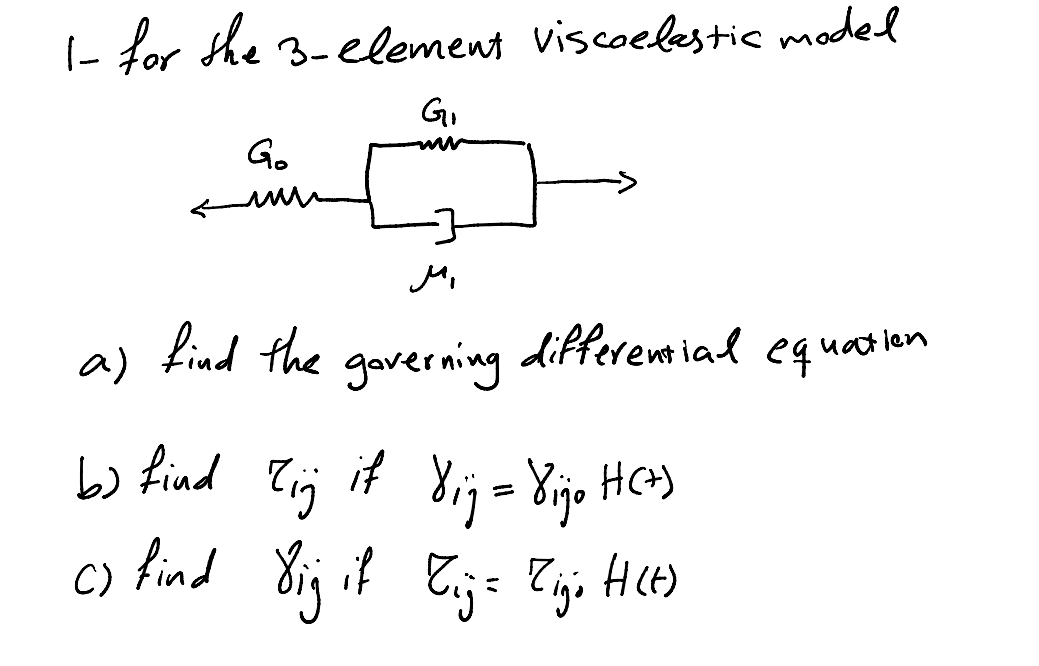 1- for the 3-element viscoelastic model
G₁
G₀
μ₁
a) find the governing differential equation
b) find τij if γij = γij₀ H(t)
c) find γij if τij = τij₀ H(t)